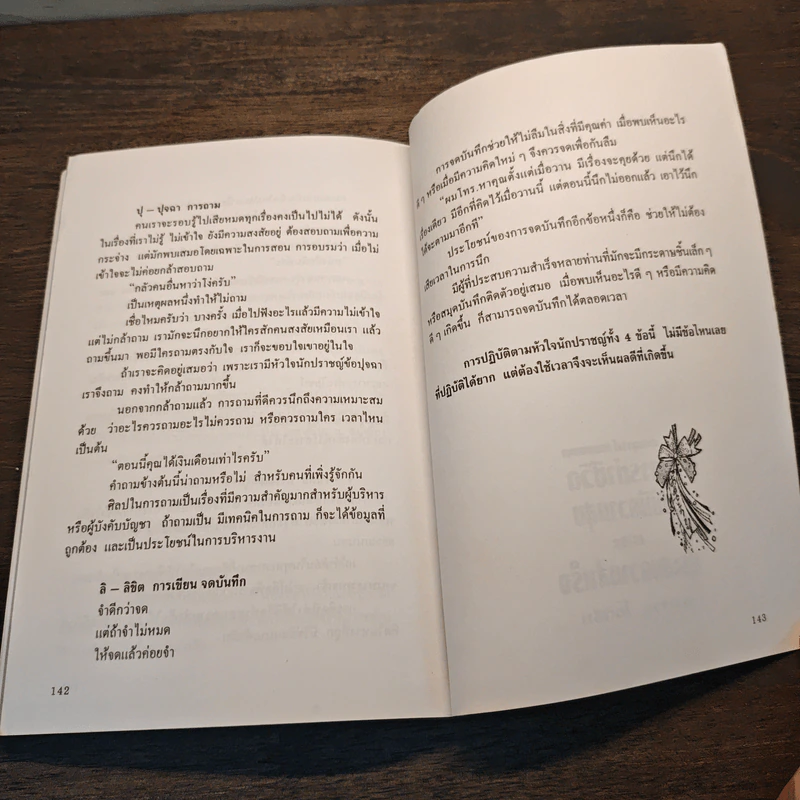 ปุ – ปุจฉา การถาม
คนเราจะรอบรู้ไปเสียหมดทุกเรื่องคงเป็นไปไม่ได้ ดังนั้น
ในเรื่องที่เราไม่รู้ ไม่เข้าใจ ยังมีความสงสัยอยู่ ต้องสอบถามเพื่อความ
กระจ่าง แต่มักพบเสมอโดยเฉพาะในการสอน การอบรมว่า เมื่อไม่
เข้าใจจะไม่ค่อยกล้าสอบถาม
“กลัวคนอื่นหาว่าโง่ครับ”
เป็นเหตุผลหนึ่งทำให้ไม่ถาม
เชื่อไหมครับว่า บางครั้ง เมื่อไปฟังอะไรแล้วมีความไม่เข้าใจ
แต่ไม่กล้าถาม เรามักจะนึกอยากให้ใครสักคนสงสัยเหมือนเรา แล้ว
ถามขึ้นมา พอมีใครถามตรงกับใจ เราก็จะขอบใจเขาอยู่ในใจ
ถ้าเราจะคิดอยู่เสมอว่า เพราะเรามีหัวใจนักปราชญ์ข้อปุจฉา
เราจึงถาม คงทำให้กล้าถามมากขึ้น
นอกจากกล้าถามแล้ว การถามที่ดีควรนึกถึงความเหมาะสม
ด้วย ว่าอะไรควรถามอะไรไม่ควรถาม หรือควรถามใคร เวลาไหน
เป็นต้น
“ตอนนี้คุณได้เงินเดือนเท่าไรครับ”
คำถามข้างต้นนี้น่าถามหรือไม่ สำหรับคนที่เพิ่งรู้จักกัน
ศิลปในการถามเป็นเรื่องที่มีความสำคัญมากสำหรับผู้บริหาร
หรือผู้บังคับบัญชา ถ้าถามเป็น มีเทคนิคในการถาม ก็จะได้ข้อมูลที่
ถูกต้อง และเป็นประโยชน์ในการบริหารงาน
ลิ – ลิขิต การเขียน จดบันทึก
จำดีกว่าจด
แต่ถ้าจำไม่หมด
ให้จดแล้วค่อยจำ
142
การจดบันทึกช่วยให้ไม่ลืมในสิ่งที่มีคุณค่า เมื่อพบเห็นอะไร
ดี ๆ หรือเมื่อมีความคิดใหม่ ๆ จึงควรจดเพื่อกันลืม
“ผมโทร.หาคุณตั้งแต่เมื่อวาน มีเรื่องจะคุยด้วย แต่นึกได้
เรื่องเดียว มีอีกที่คิดไว้เมื่อวานนี้ แต่ตอนนี้นึกไม่ออกแล้ว เอาไว้นึก
ได้จะตามมาอีกที”
ประโยชน์ของการจดบันทึกอีกข้อหนึ่งก็คือ ช่วยให้ไม่ต้อง
เสียเวลาในการนึก
มีผู้ที่ประสบความสำเร็จหลายท่านที่มักจะมีกระดาษชิ้นเล็ก ๆ
หรือสมุดบันทึกติดตัวอยู่เสมอ เมื่อพบเห็นอะไรดี ๆ หรือมีความคิด
ดี ๆ เกิดขึ้น ก็สามารถจดบันทึกได้ตลอดเวลา
การปฏิบัติตามหัวใจนักปราชญ์ทั้ง 4 ข้อนี้ ไม่มีข้อไหนเลย
ที่ปฏิบัติได้ยาก แต่ต้องใช้เวลาจึงจะเห็นผลดีที่เกิดขึ้น
143